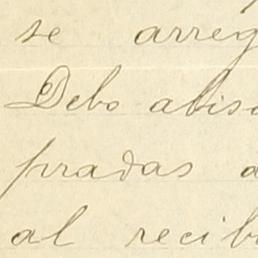 se arreg
Debo abiso
pradas a
al recib